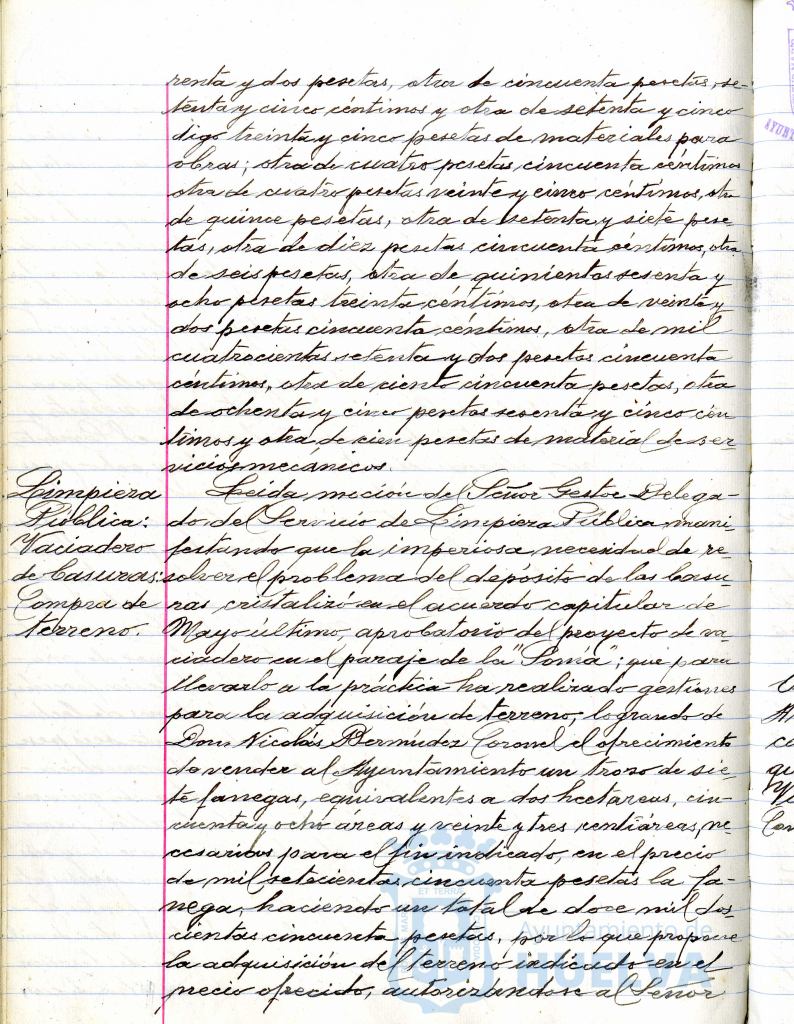 renta y dos pesetas, otra de cincuenta pesetas, se-
tenta y cinco céntimos y otra de setenta y cinco
digo treinta y cinco pesetas de materiales para
obras; otra de cuatro pesetas cincuenta céntimos
otra de cuatro pesetas veinte y cinco céntimos, otra
de quince pesetas, otra de setenta y siete pese-
tas, otra de diez pesetas cincuenta céntimos, otra
de seis pesetas, otra de quinientas sesenta y
ocho pesetas treinta céntimos, otra de veinte y
dos pesetas cincuenta céntimos, otra de mil
cuatrocientas setenta y dos pesetas cincuenta
céntimos, otra de ciento cincuenta pesetas, otra
de ochenta y cinco pesetas sesenta y cinco cén
timos y otra de cien pesetas de material de ser-
vicios mecánicos.
Limpieza
Pública:
Vaciadero
de basuras:
Compra de
terreno.
Leida moción del Señor Gestor Delega-
do del Servicio de Limpieza Pública mani
festando que la imperiosa necesidad de re-
solver el problema del depósito de las basu-
ras cristalizó en el acuerdo capitular de
Mayo último, aprobatorio del proyecto de va-
ciadero en el paraje de la "Soma"; que para
llevarlo a la práctica ha realizado gestiones
para la adquisición de terreno, logrando de
Don Nicolás Bermúdez Coronel el ofrecimiento
de vender al Ayuntamiento un trozo de sie-
te fanegas, equivalentes a dos hectareas, cin-
cuenta y ocho áreas y veinte y tres centiáreas, ne-
cesarios para el fin indicado, en el precio
de mil setecientas cincuenta pesetas la fa-
nega, haciendo un total de doce mil dos-
cientas cincuenta pesetas, por lo que propone
la adquisición del terreno indicado en el
precio ofrecido, autorizándose al Señor
ET TERRA
Ayuntamiento de
HUELVA